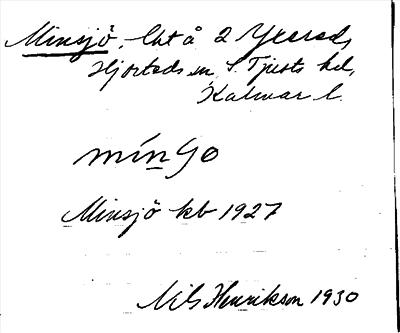 Minsjö, lht å 2 Yxered,
Hjorteds sn, S. Tjusts hd,
Kalmar l.
mínʒo
Minsjö kb 1927
Nils Henrikson 1930